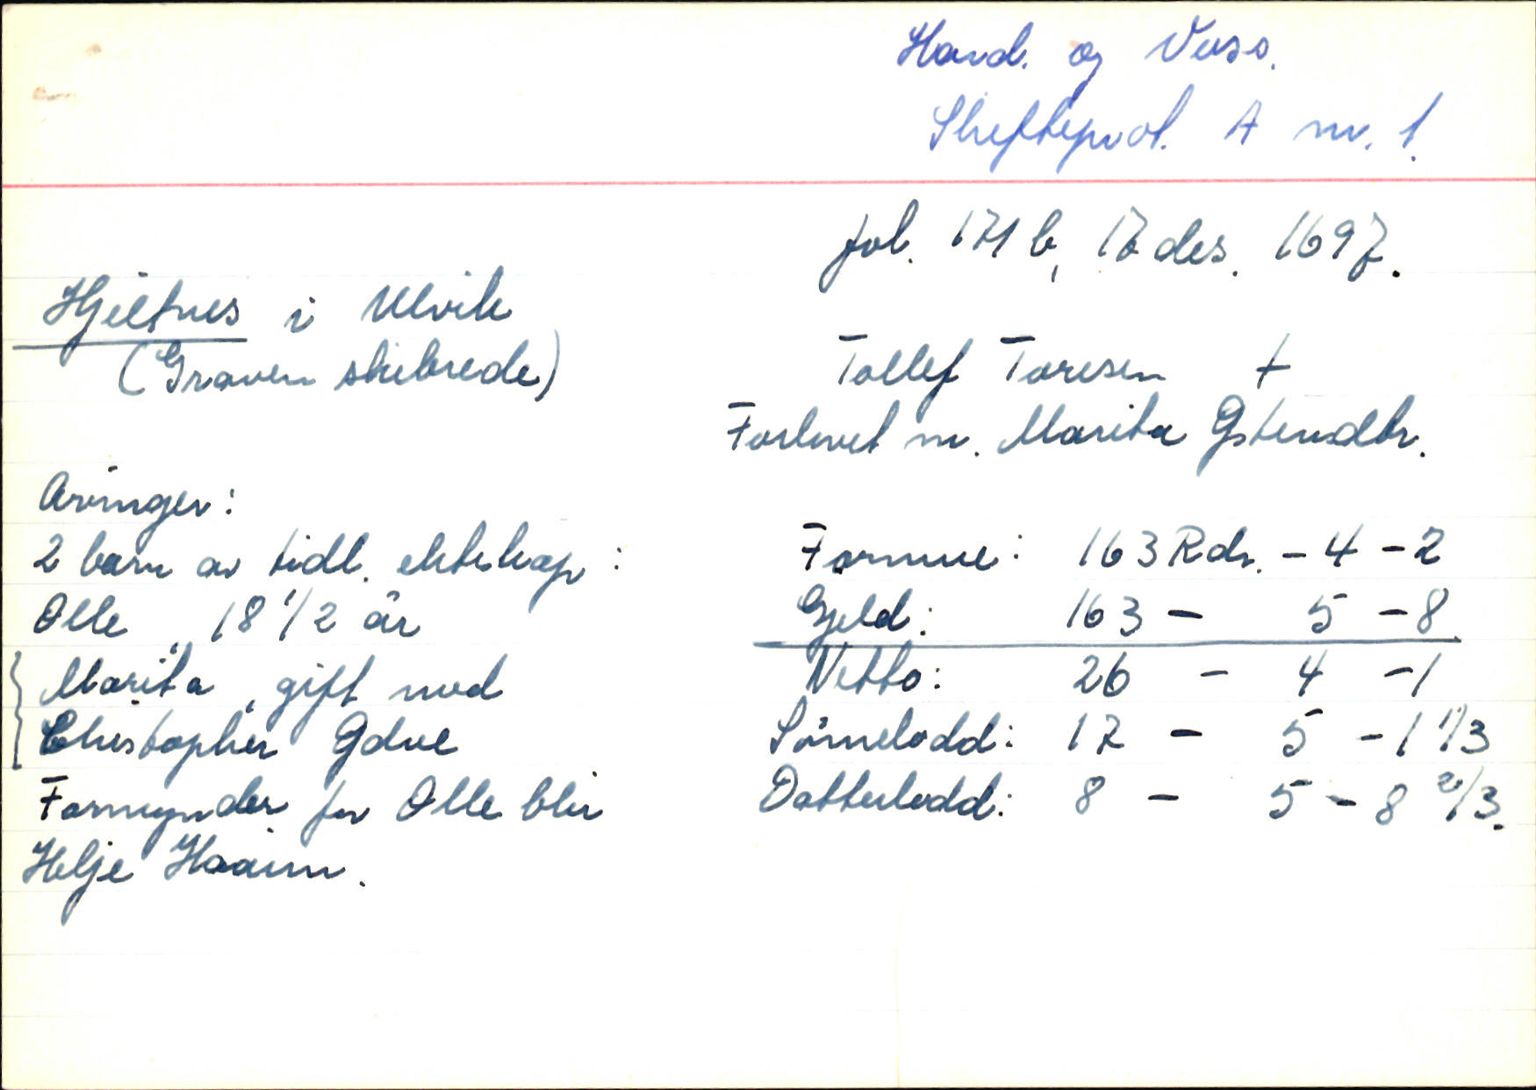 Hard. og Voss.
Skifteprot. A nr. 1.
fol. 171 b, 17 des. 1697.
Hjeltnes i Ulvik
(Graven skibrede)
Tollef Toresen +
Forlovet m. Marita Østensdtr.
Arvinger:
2 barn av tidl. ekteskap:
Olle, 18 1/2 år
Marita, gift med
Christopher Ødve
Formynder for Olle blir
Helje Haaim.
Formue: 163 Rdr. - 4 - 2
Gjeld: 163 - 5 - 8
Netto: 26 - 4 - 1
Sønnelodd: 17 - 5 - 1 1/3
Datterlodd: 8 - 5 - 8 2/3.